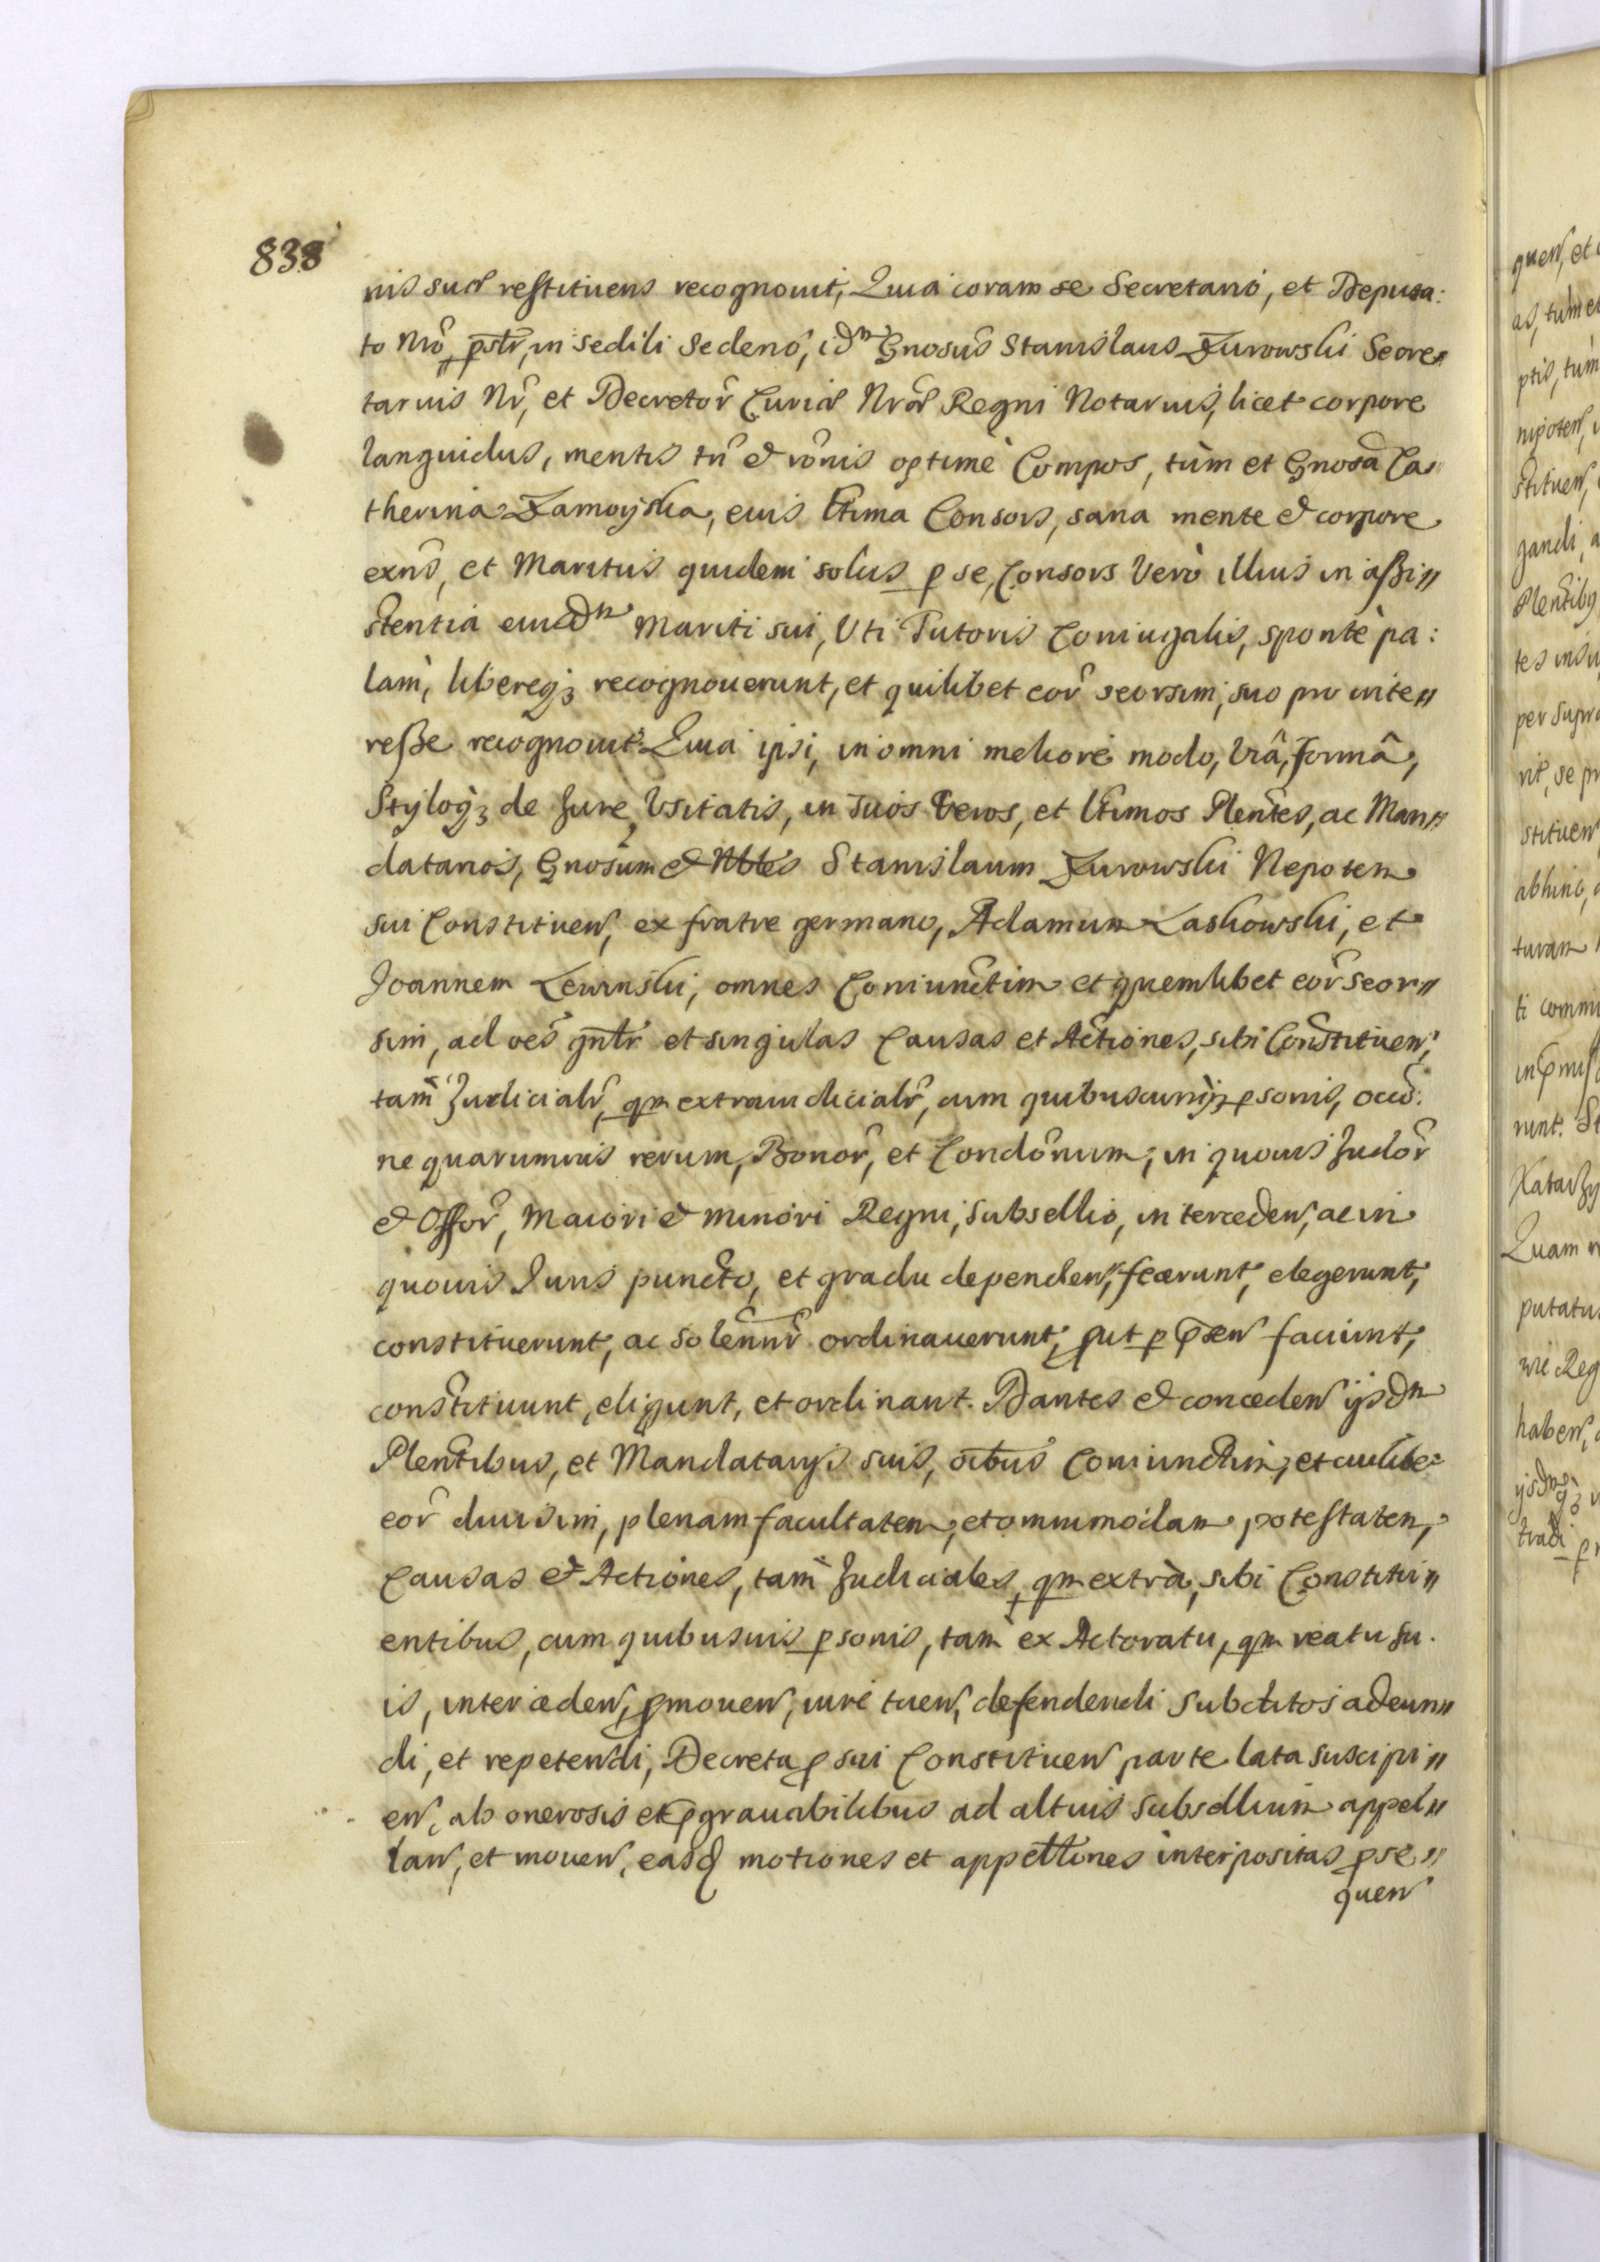 838
nis suæ restituens recognovit, Quia coram se Secretario, et Deputa:
to Nro p̱str, in sedili sedeñ, idm Gnosus Stanislaus Żurowski Secre„
tarius Nr, et Decretor Curiæ Nræ Regni Notarius, licet corpore
languidus, mentis tn & rõnis optimè Compos, tùm et Gnosa Ca„
therina Zamoyska, eius lttima Consors, sana mente & corpore
exns, et Maritus quidem solus p se, Consors verò illius in assi„
stentia eiusdm Mariti sui, Uti Tutoris Coniugalis, spontè pa:
làm, libereq3 recognoverunt, et quilibet eor seorsim, suo pro inte„
resse recognovit. Quia ipsi, in omni meliori modo, viâ, formâ,
Styloq3 de Jure usitatis, in suos veros, et lttimos Plentes, ac Man„
datarios, Gnosum & Nobles Stanislaum Żurowski Nepotem
sui Constituen, ex fratre germano, Adamum Laskowski, et
Joannem Lewinski, omnes Coniunctim et quemlibet eor Seor„
sim, ad oes gnlr et singulas Causas et Actiones, sibi Constituen,
tam Judicialr, qm extraiudicialr, cum quibuscunq3 psonis, occõ:
ne quarumvis rerum, Bonor, et Condõnum, in quovis Judor
& Offor, Maiori & minori Regni, Subsellio, interceden, ac in
quovis Juris puncto, et gradu dependen, fecerunt, elegerunt,
constituerunt, ac solennr ordinaverunt, put p p̃sen faciunt,
constituunt, eligunt, et ordinant. Dantes & conceden ijsdm
Plentibus, et Mandatarijs suis, oibus Coniunctim, et cuilibe=
eor divisim, plenam facultatem, et omnimodam potestatem,
Causas & Actiones, tam Judiciales, qm extrà, sibi Constitu„
entibus, cum quibusuis psonis, tam ex Actoratu, qm reatu su.
is, interceden, pmoven, iure tuen, defendendi Subditos adeun„
di, et repetendi, Decreta p sui Constituen parte lata suscipi„
en, ab onerosis et pgravabilibus ad altius subsellium appel„
lan, et moven, easq motiones et appelltiones interpositas pse„
quen